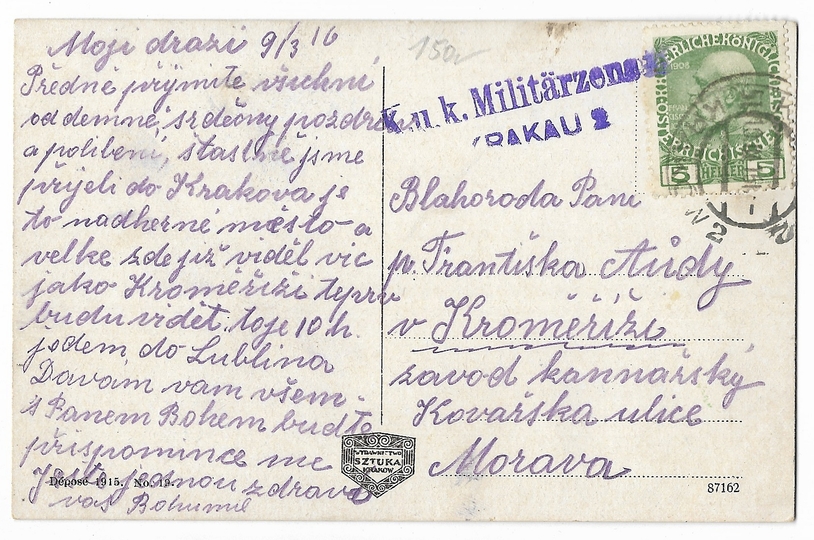 Moji drazi 9/3 16
Předně přijmite všichni
odemně, srdečny pozdrav
a polibeni, šťastně jsme
přijeli do Krakova je
to nadherné město a
velke zde již viděl vic
jako Kroměříži teprv
budu vidět, to je 10 h.
jedem do Lublina
Davam vam všem
s Panem Bohem budte
přispomince me
Ještě jednou zdravi
vaš Bohumil
150,-
K. u k. Militärzensur
KRAKAU 2
5 HELLER 5
1908
Blahoroda Pani
p. Františka Aůdy
v Kroměříži
zavod kannařský
Kovařska ulice
Morava
WYDAWNICTWO
SZTUKA
KRAKÓW
Déposé 1915. No. 19.
87162